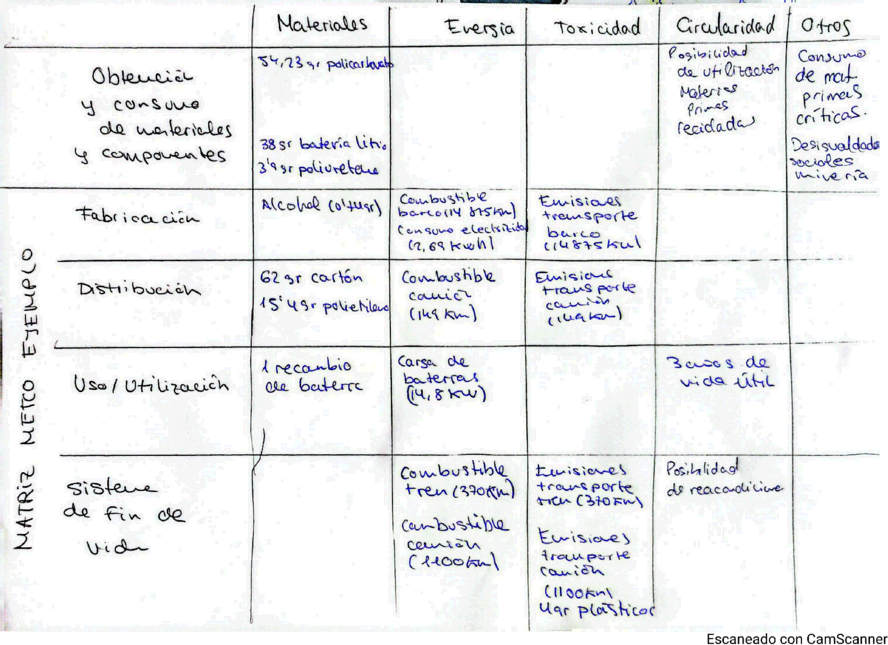 Materiales Energía Toxicidad Circularidad Otros
Obtención
y consumo
de materiales
y componentes
54,23 gr policarbonato
38 gr batería litio
3'9 gr poliuretano
Posibilidad
de utilización
Materias
Primas
recicladas
Consumo
de mat
primas
críticas.
Desigualdades
sociales
minería
MATRIZ METCO EJEMPLO
Fabricación
Alcohol
Combustible
barco (14 875 km)
Consumo electricidad
(2,69 kwh)
Emisiones
transporte
barco
(14875 km)
Distribución
62 gr cartón
15'4 gr polietileno
Combustible
camión
(149 km)
Emisiones
transporte
camión
(149 km)
Uso / Utilización
1 recambio
de batería
Carga de
baterías
(14,8 KW)
3 años de
vida útil
Sistema
de fin de
vida
Combustible
tren (370 km)
Combustible
camión
(1100 km)
Emisiones
transporte
tren (370 km)
Emisiones
transporte
camión
(1100 km)
4 gr plásticos
Posibilidad
de reacondicionar
Escaneado con CamScanner